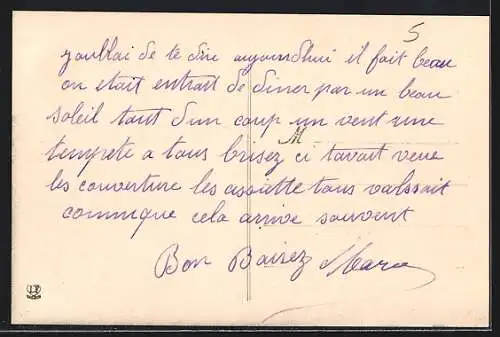 5
joublai de te dire aujourdhui il fait beau
on etait entrait de diner par un beau
soleil tout d'un coup un vent une
M
tempete a tous brisez ci tavait vene
les couverture les assiette tous valssait
comique cela arrive souvent
Bon Baisez Marie